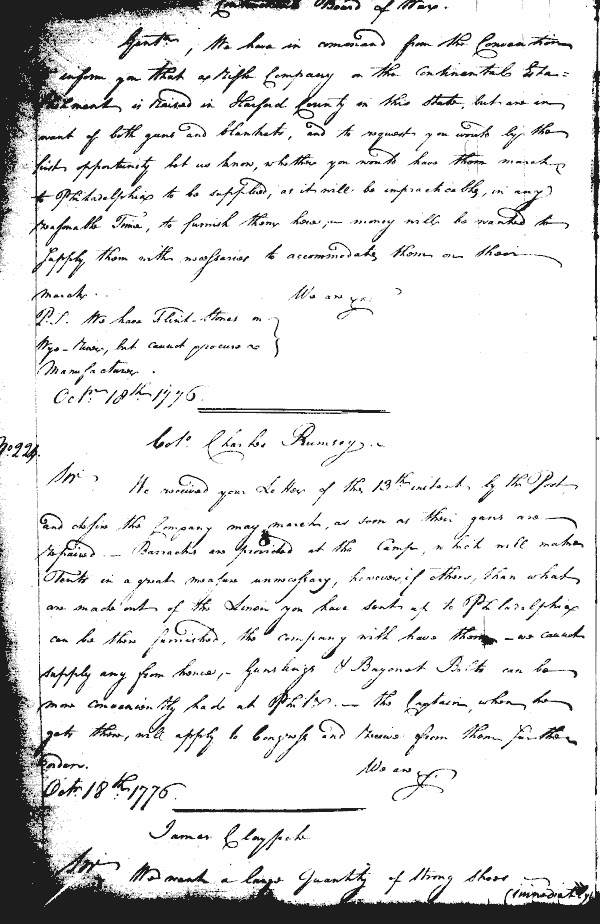 Continental Board of War.
Gentn, We have in command from the Convention
to inform you that a Rifle Company on the Continental Esta=
blishment is raised in Harford County in this State, but are in
want of both guns and blankets, and to request you would by the
first opportunity let us know, whether you would have them march
to Philadelphia to be supplied, as it will be impracticable, in any
reasonable Time, to furnish them here, - money will be wanted to
supply them with necessaries to accommodate them on their
march.
We are &c.
P.S. We have Flint-Stones on
Wye-River, but cannot procure a
Manufacturer.
Octr. 18th 1776.
No. 224.
Colo. Charles Rumsey. -
Sir We received your Letter of the 13th instant by the Post
and desire the Company may march, as soon as their guns are
repaired - Barracks are provided at the Camp, which will make
Tents in a great measure unnecessary, however, if others, than what
are made out of the Linen you have sent up to Philadelphia
can be there furnished, the company will have them - we cannot
supply any from hence, - Gunslings & Bayonet Belts can be
more conveniently had at Phila. - the Captain, when he
gets there, will apply to Congress and receive from them further
orders.
We are &c.
Octr. 18th 1776.
James Claypoole
Sir We want a large Quantity of strong shoes
(immediately